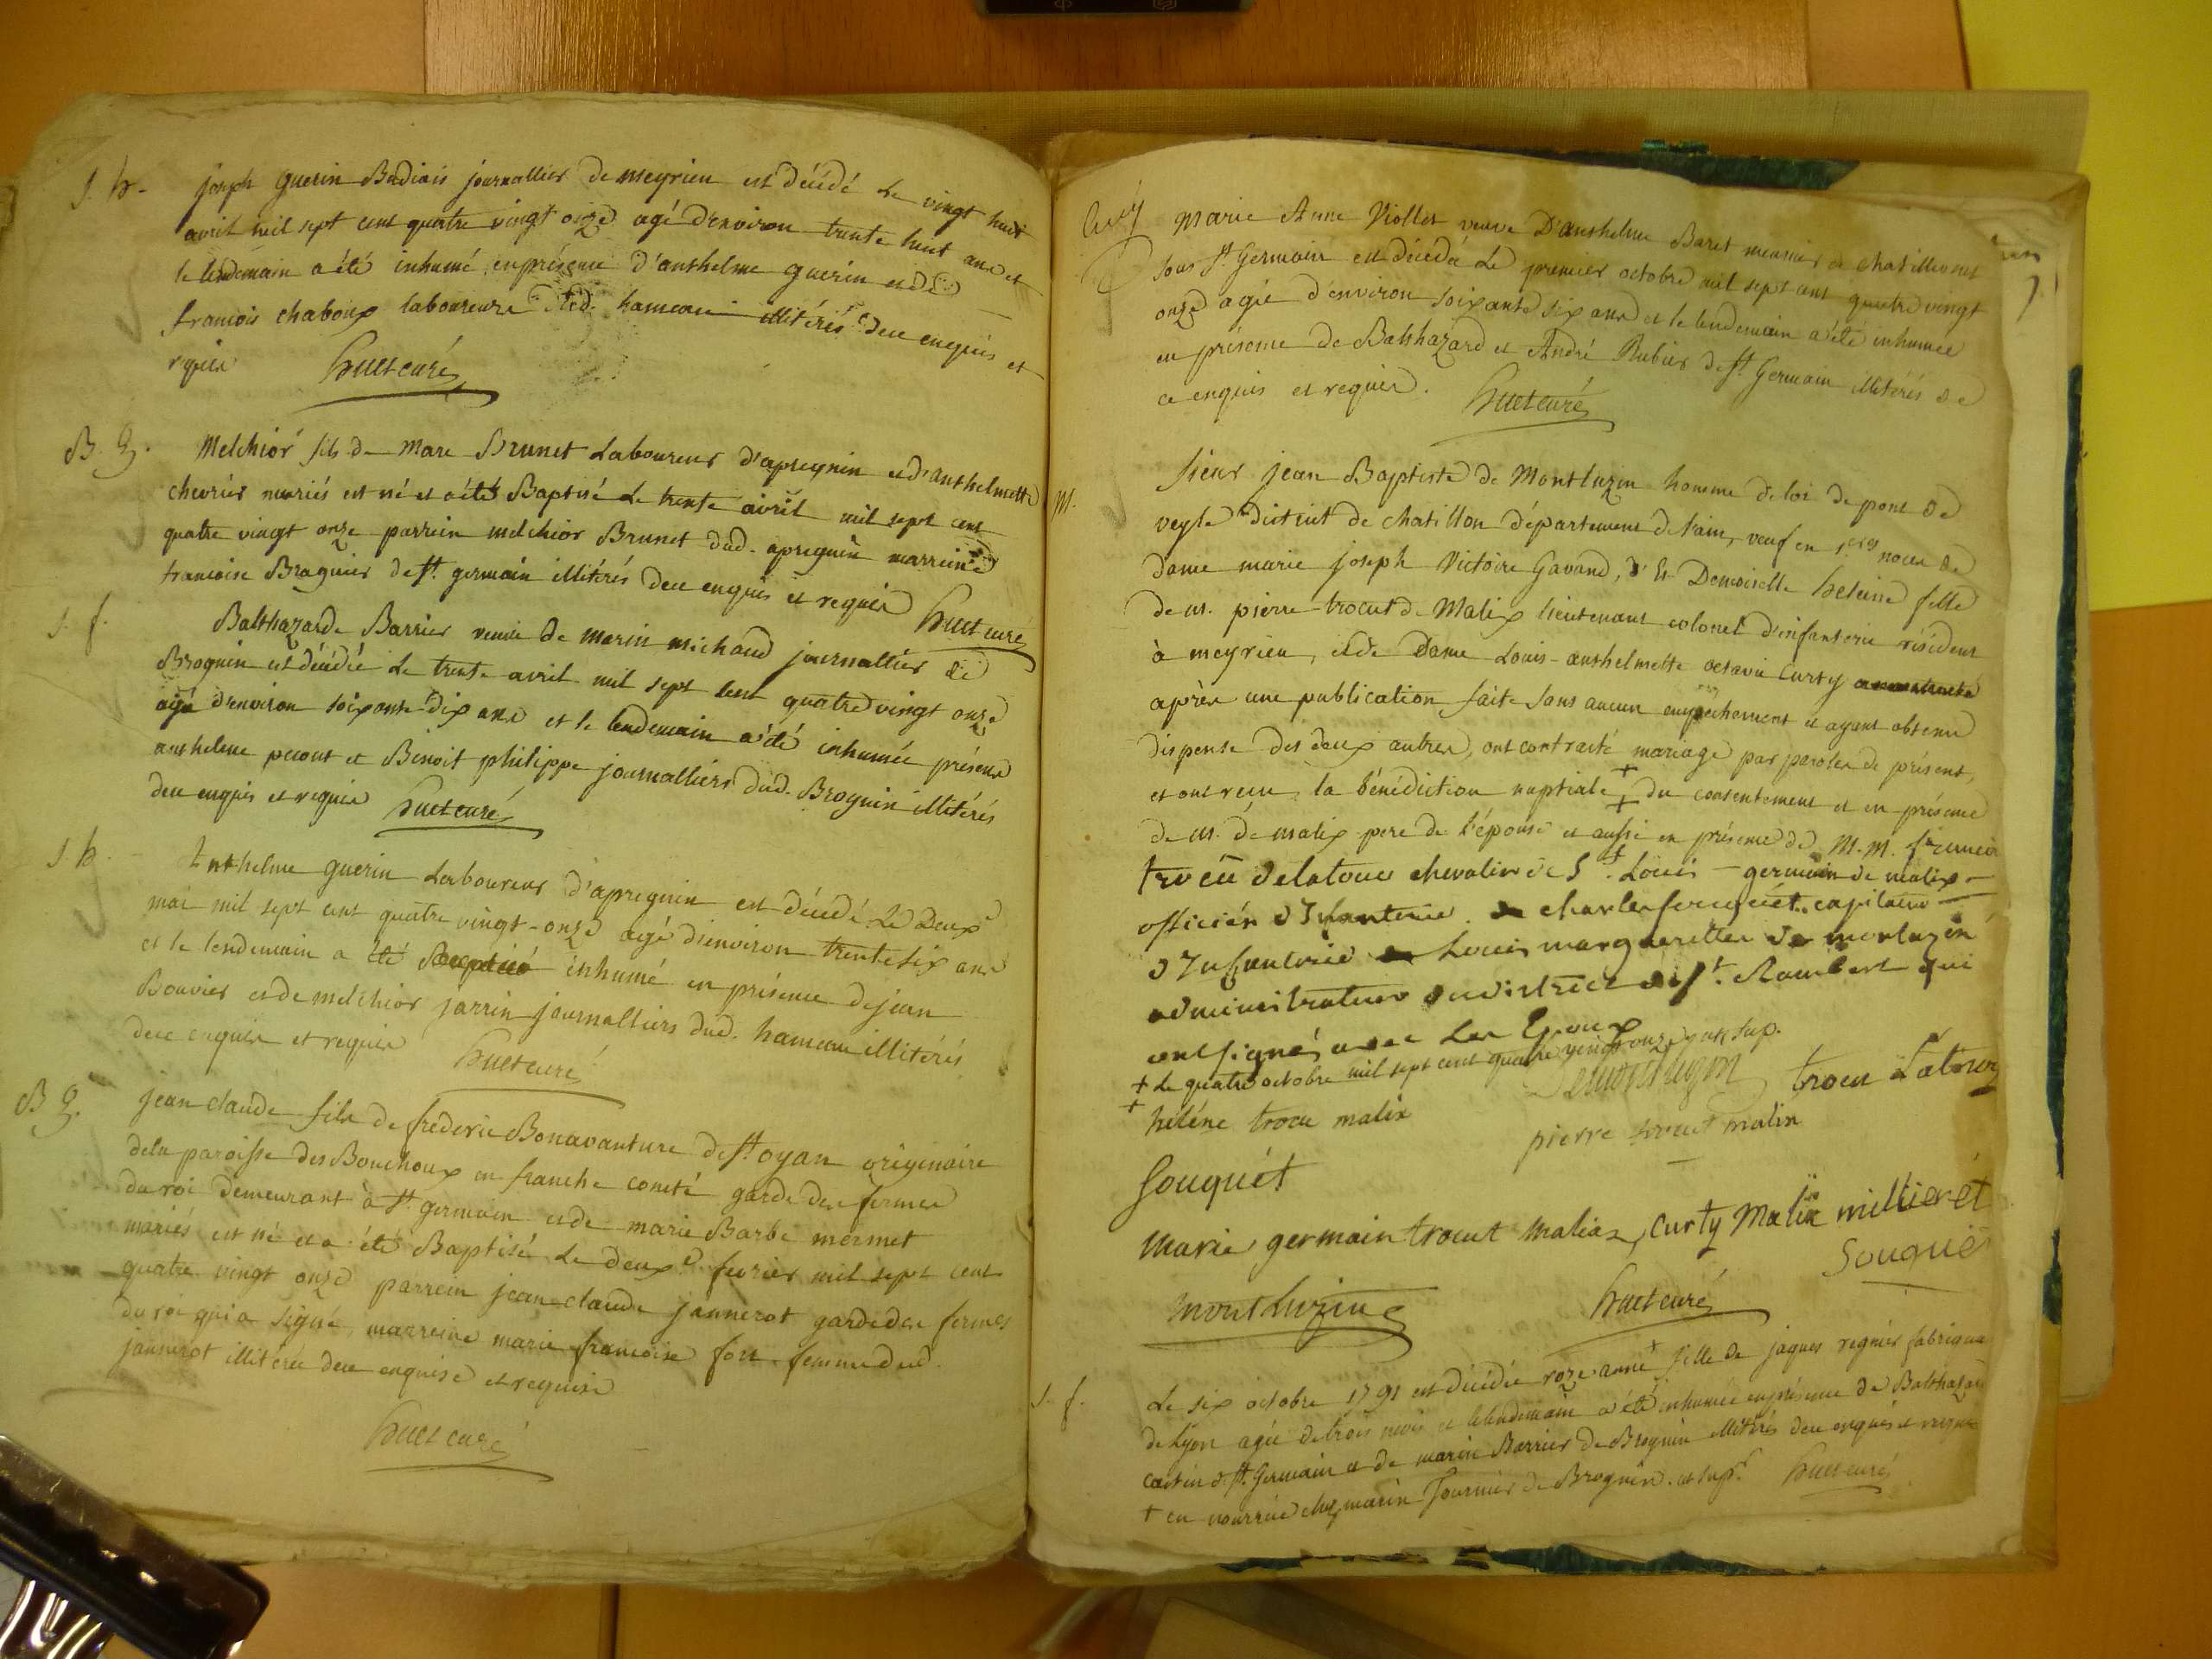 S. h.
joseph guerin Badiais journallier de meyrieu est décédé Le vingt huit
avril mil sept cent quatre vingt onze agé d'environ trente huit ans et
le lendemain a été inhumé en présence d'anthelme guerin et de
francois chaboux laboureurs dud. hameau illitérés dece enquis et
requis huet curé
B. g.
Melchior fils de Marc Brunet Laboureur d'apregnin et d'anthelmette
chevrier mariés est né et a été Baptisé Le trente avril mil sept cent
quatre vingt onze parrein melchior Brunet dud. apregnin marreine
francoise Braguier de St. germain illitérés dece enquis et requis huet curé
S. f.
Balthazarde Barrier veuve de marin michaud journallier de
Brognin est décédée Le trente avril mil sept cent quatre vingt onze
agée d'environ soixante dix ans et le lendemain a été inhumée présens
anthelme peront et Benoit philippe journalliers dud. Brognin illitérés
dece enquis et requis huet curé
S. h.
Anthelme guerin Laboureur d'apregnin est décédé Le Deux
mai mil sept cent quatre vingt-onze agé d'environ trente six ans
et le lendemain a été inhumé en présence de jean
Bouvier et de melchior jarrin journalliers dud. hameau illitérés
dece enquis et requis huet curé
B g.
jean claude fils de frederic Bonavanture de St. oyan originaire
dela paroisse des Bouchoux en franche comté garde des fermes
du roi demeurant à St. germain et de marie Barbe mermet
mariés est né et a été Baptisé Le deux fevrier mil sept cent
quatre vingt onze parrein jean claude jannerot garde des fermes
du roi qui a signé, marreine marie francoise fort femme dud.
jannerot illitérée dece enquise et requise
huet curé
Marie Anne Viollet veuve D'anthelme Baret meunier de chatillonet
sous St. Germain est décédée Le premier octobre mil sept cent quatre vingt
onze agée d'environ soixante six ans et le lendemain a été inhumée
en présence de Balthazard et André Rubier de St. Germain illitérés de
ce enquis et requis. huet curé
M.
sieur jean Baptiste de Montluzin homme de loi de pont de
veyle district de chatillon département de l'ain, veuf en 1eres noces de
dame marie joseph Victoire Gavand, Et Demoiselle heleine fille
de m. pierre trocut de Malix lieutenant colonel d'infanterie résident
à meyrieu, et de Dame Louis-anthelmette octavie Curty
après une publication faite sans aucun empêchement et ayant obtenu
dispense des deux autres, ont contracté mariage par paroles de présent,
et ont recu la bénédiction nuptiale ++ du consentement et en présence
de m. de malix pere de l'épouse et aussi en présence de M. M.
trocu delatour chevalier de St. Louis - germain de malix -
officier d'Infanterie. charles souquét. capitaine
d'Infanterie Louis marguerittes de montuzin
administrateur du district de St. Rambert qui
ont signés avec Les Epoux
+ Le quatre octobre mil sept cent quatre vingt onze ut sup.
Demontluzin trocu Latour
+ heléne trocu malix pierre trocut malix
Souquét
Marie germain trocut malix, Curty Malix millieret
Souquié
montluzin huet curé
S. f.
Le six octobre 1791 est décédée roze anne+ fille de jaques regnier fabriquan
de Lyon agée de trois mois et le lendemain a été inhumée en présence de Balthazar
cartin de St. Germain et de marin Barrier de Brognin illitérés dece enquis et requis
+ en nourrice chez marin Fournier de Brognin. ut supr. huet curé